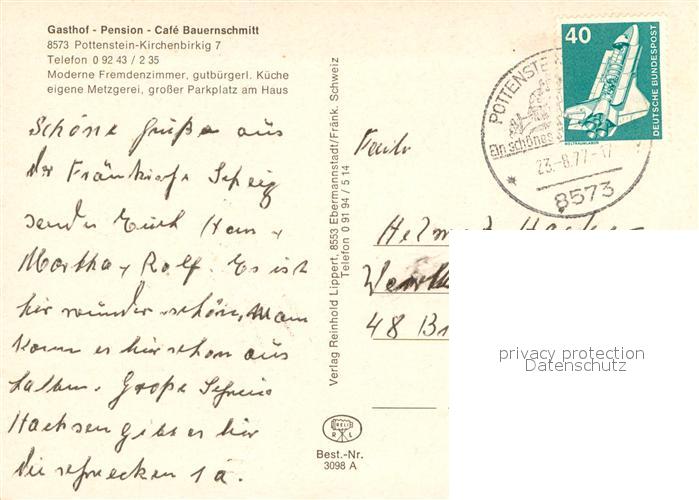 Gasthof - Pension - Café Bauernschmitt
8573 Pottenstein-Kirchenbirkig 7
Telefon 0 92 43 / 2 35
Moderne Fremdenzimmer, gutbürgerl. Küche
eigene Metzgerei, großer Parkplatz am Haus
Schöne Grüße aus
der Fränkische
senden Euch Hans +
Martha + Rolf. Es ist
hier wunderschön, Mann
kann es hier schon aus
halten. Große Schweins
Hachsen gibt es hier
die schmecken 1a.
Verlag Reinhold Lippert, 8553 Ebermannstadt/Fränk. Schweiz
Telefon 0 91 94 / 5 14
RELI
R L
Best.-Nr.
3098 A
40
DEUTSCHE BUNDESPOST
WELTRAUMLABOR
POTTENSTE
Ein schönes
23.-8.77-17
8573
Familie
Helmut
48 Bi
privacy protection
Datenschutz